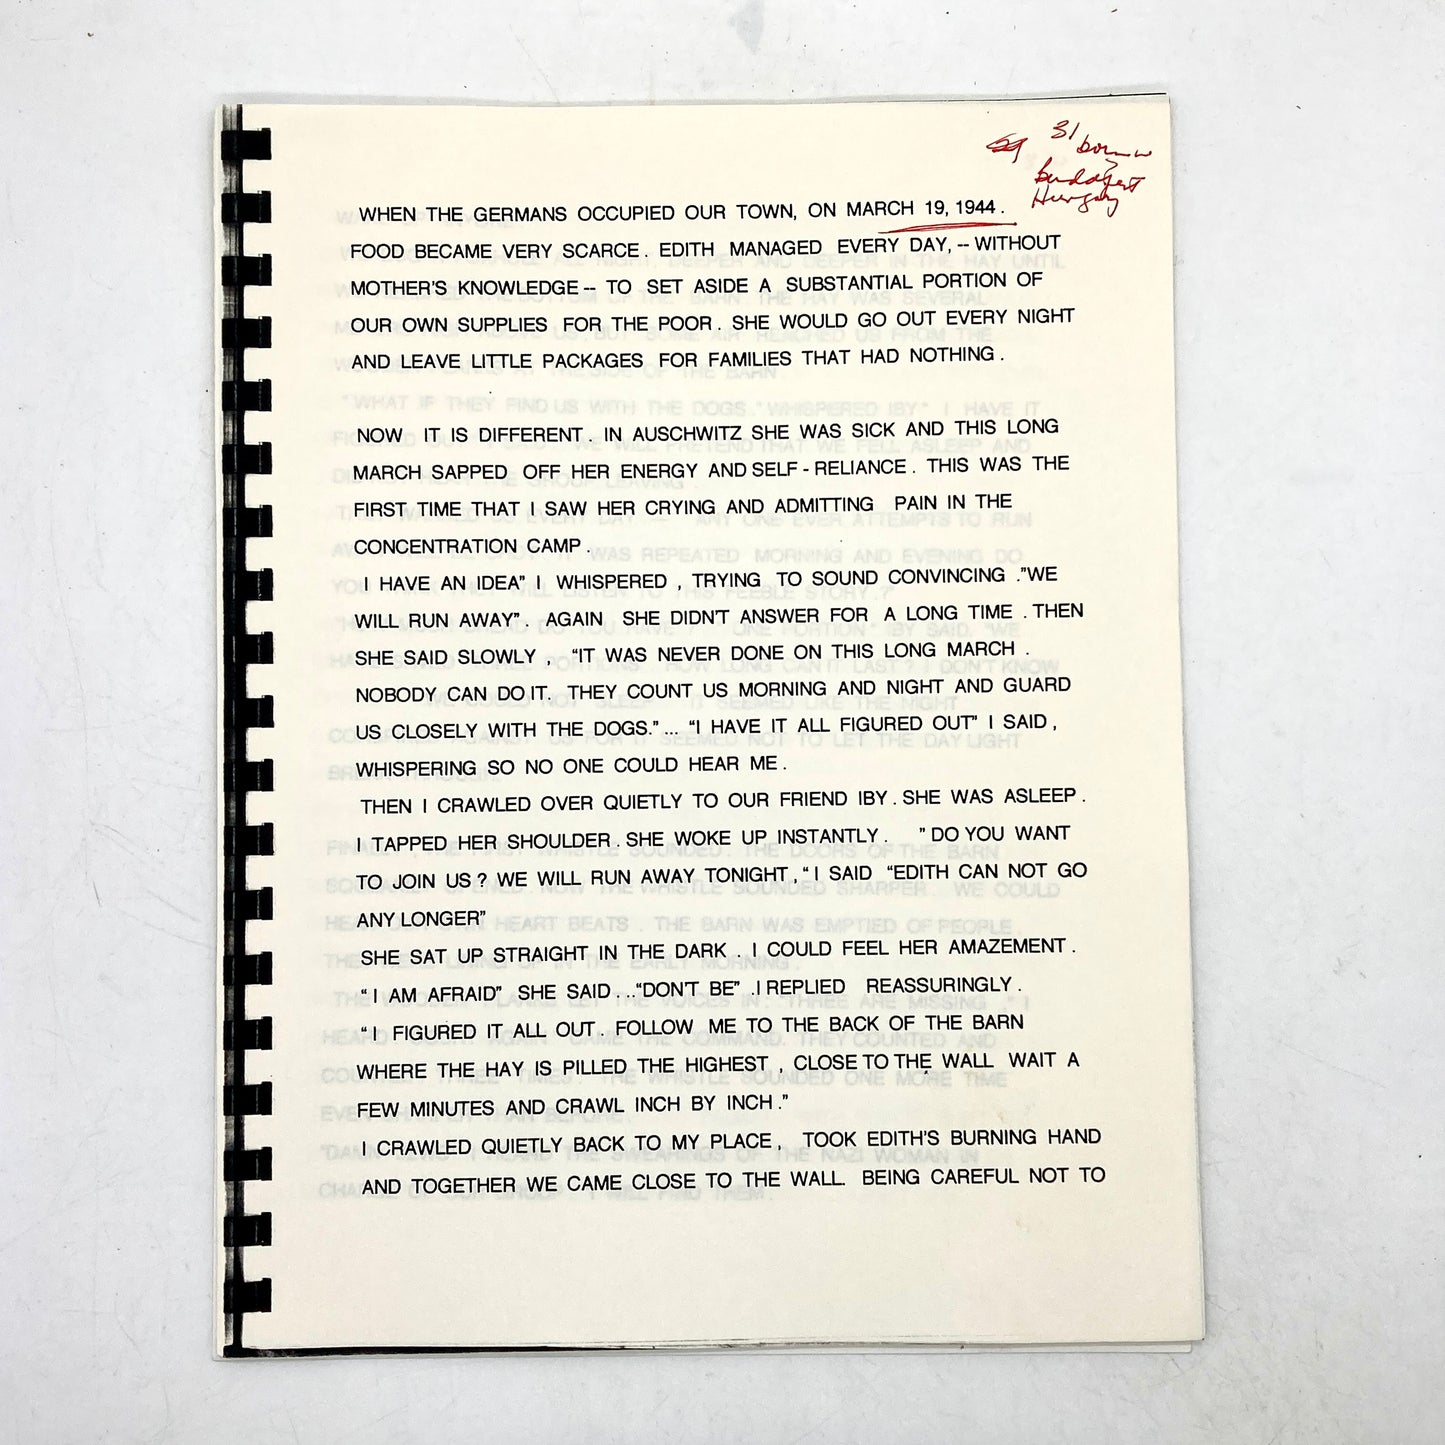 31
born in
Budapest
Hungary
WHEN THE GERMANS OCCUPIED OUR TOWN, ON MARCH 19, 1944 .
FOOD BECAME VERY SCARCE . EDITH MANAGED EVERY DAY, -- WITHOUT
MOTHER'S KNOWLEDGE -- TO SET ASIDE A SUBSTANTIAL PORTION OF
OUR OWN SUPPLIES FOR THE POOR . SHE WOULD GO OUT EVERY NIGHT
AND LEAVE LITTLE PACKAGES FOR FAMILIES THAT HAD NOTHING .
NOW IT IS DIFFERENT . IN AUSCHWITZ SHE WAS SICK AND THIS LONG
MARCH SAPPED OFF HER ENERGY AND SELF - RELIANCE . THIS WAS THE
FIRST TIME THAT I SAW HER CRYING AND ADMITTING PAIN IN THE
CONCENTRATION CAMP .
I HAVE AN IDEA” I WHISPERED , TRYING TO SOUND CONVINCING .”WE
WILL RUN AWAY” . AGAIN SHE DIDN'T ANSWER FOR A LONG TIME . THEN
SHE SAID SLOWLY , “IT WAS NEVER DONE ON THIS LONG MARCH .
NOBODY CAN DO IT. THEY COUNT US MORNING AND NIGHT AND GUARD
US CLOSELY WITH THE DOGS.”... “I HAVE IT ALL FIGURED OUT” I SAID ,
WHISPERING SO NO ONE COULD HEAR ME .
THEN I CRAWLED OVER QUIETLY TO OUR FRIEND IBY . SHE WAS ASLEEP .
I TAPPED HER SHOULDER . SHE WOKE UP INSTANTLY . ” DO YOU WANT
TO JOIN US ? WE WILL RUN AWAY TONIGHT , “ I SAID “EDITH CAN NOT GO
ANY LONGER”
SHE SAT UP STRAIGHT IN THE DARK . I COULD FEEL HER AMAZEMENT .
“ I AM AFRAID” SHE SAID ...“DON'T BE” .I REPLIED REASSURINGLY .
“ I FIGURED IT ALL OUT . FOLLOW ME TO THE BACK OF THE BARN
WHERE THE HAY IS PILLED THE HIGHEST , CLOSE TO THE WALL WAIT A
FEW MINUTES AND CRAWL INCH BY INCH .”
I CRAWLED QUIETLY BACK TO MY PLACE , TOOK EDITH'S BURNING HAND
AND TOGETHER WE CAME CLOSE TO THE WALL BEING CAREFUL NOT TO